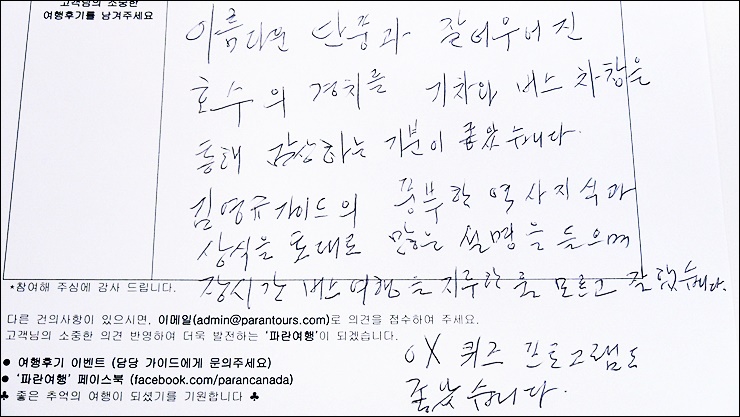 고객님의 소중한
여행후기를 남겨주세요
아름다운 단풍과 잘 어우러진
호수의 경치를 기차와 버스 차창을
통해 감상하는 기분이 좋았습니다.
김영규가이드의 풍부한 역사지식과
상식을 토대로 많은 설명을 들으며
장시간 버스여행을 지루한 줄 모르고 잘 했습니다.
*참여해 주심에 감사 드립니다.
다른 건의사항이 있으시면, 이메일(admin@parantours.com)로 의견을 접수하여 주세요.
고객님의 소중한 의견 반영하여 더욱 발전하는 '파란여행'이 되겠습니다.
● 여행후기 이벤트 (담당 가이드에게 문의주세요)
● '파란여행' 페이스북 (facebook.com/parancanada)
♣ 좋은 추억의 여행이 되셨기를 기원합니다 ♣
OX 퀴즈 프로그램도
좋았습니다.